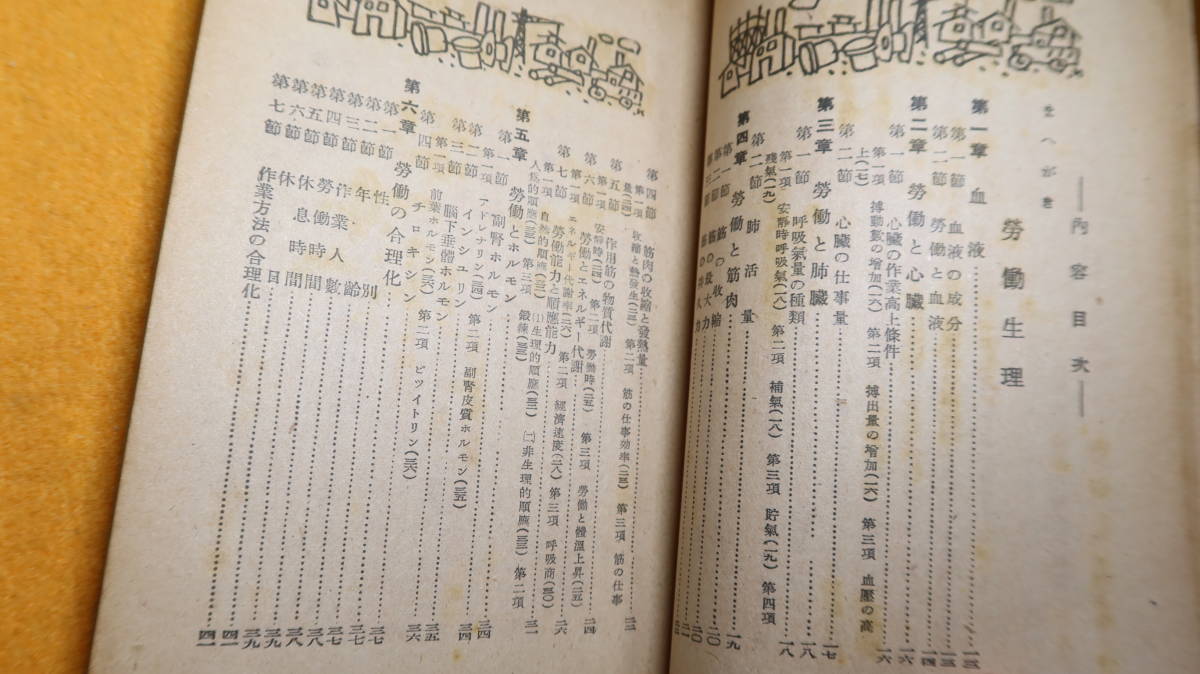 まへがき
――內容目次――
勞働生理
第一章 血液…一三
第一節 血液の成分…一三
第二節 勞働と血液…一四
第二章 勞働と心臟…一六
第一節 心臟の作業高上條件…一六
第一項 搏動數の增加(一六) 第二項 搏出量の增加(一六) 第三項 血壓の高
上(一七)
第二節 心臟の仕事量…一七
第三章 勞働と肺臟…一八
第一節 呼吸氣量の種類…一八
第一項 安靜時呼吸氣(一八) 第二項 補氣(一八) 第三項 貯氣(一九) 第四項
殘氣(一九)
第二節 肺活量…一九
第四章 勞働と筋肉…二〇
第一節 筋の收縮…二〇
第二節 筋の最大力…二一
第四節 筋肉の收縮と發熱量…二二
第一項 收縮と熱發生(二三) 第二項 筋の仕事効率(二三) 第三項 筋の仕事
量(二四)
第五節 作用筋の物質代謝…二四
第一項 安靜時(二四) 第二項 勞働時(二五) 第三項 勞働と體溫上昇(二五)
第六節 勞働とエネルギー代謝…二六
第一項 エネルギー代謝率(二六) 第二項 經濟速度(二八) 第三項 呼吸商(三〇)
第七節 勞働能力と順應能力…三一
第一項 自然的順應(三二) (一)生理的順應(三三) (二)非生理的順應(三三) 第二項
人爲的順應(三三) 第三項 鍛鍊(三三)
第五章 勞働とホルモン…三四
第一節 副腎ホルモン…三四
第一項 アドレナリン(三四) 第二項 副腎皮質ホルモン(三五)
第二節 インシュリン…三五
第三節 腦下垂體ホルモン…三六
第一項 前葉ホルモン(三六) 第二項 ピツイトリン(三六)
第四節 チロキシン…三六
第六章 勞働の合理化…三七
第一節 性別…三七
第二節 年齡…三七
第三節 作業人數…三八
第四節 勞働時間…三八
第五節 休息時間…三九
第六節 休日…四一
第七節 作業方法の合理化…四一